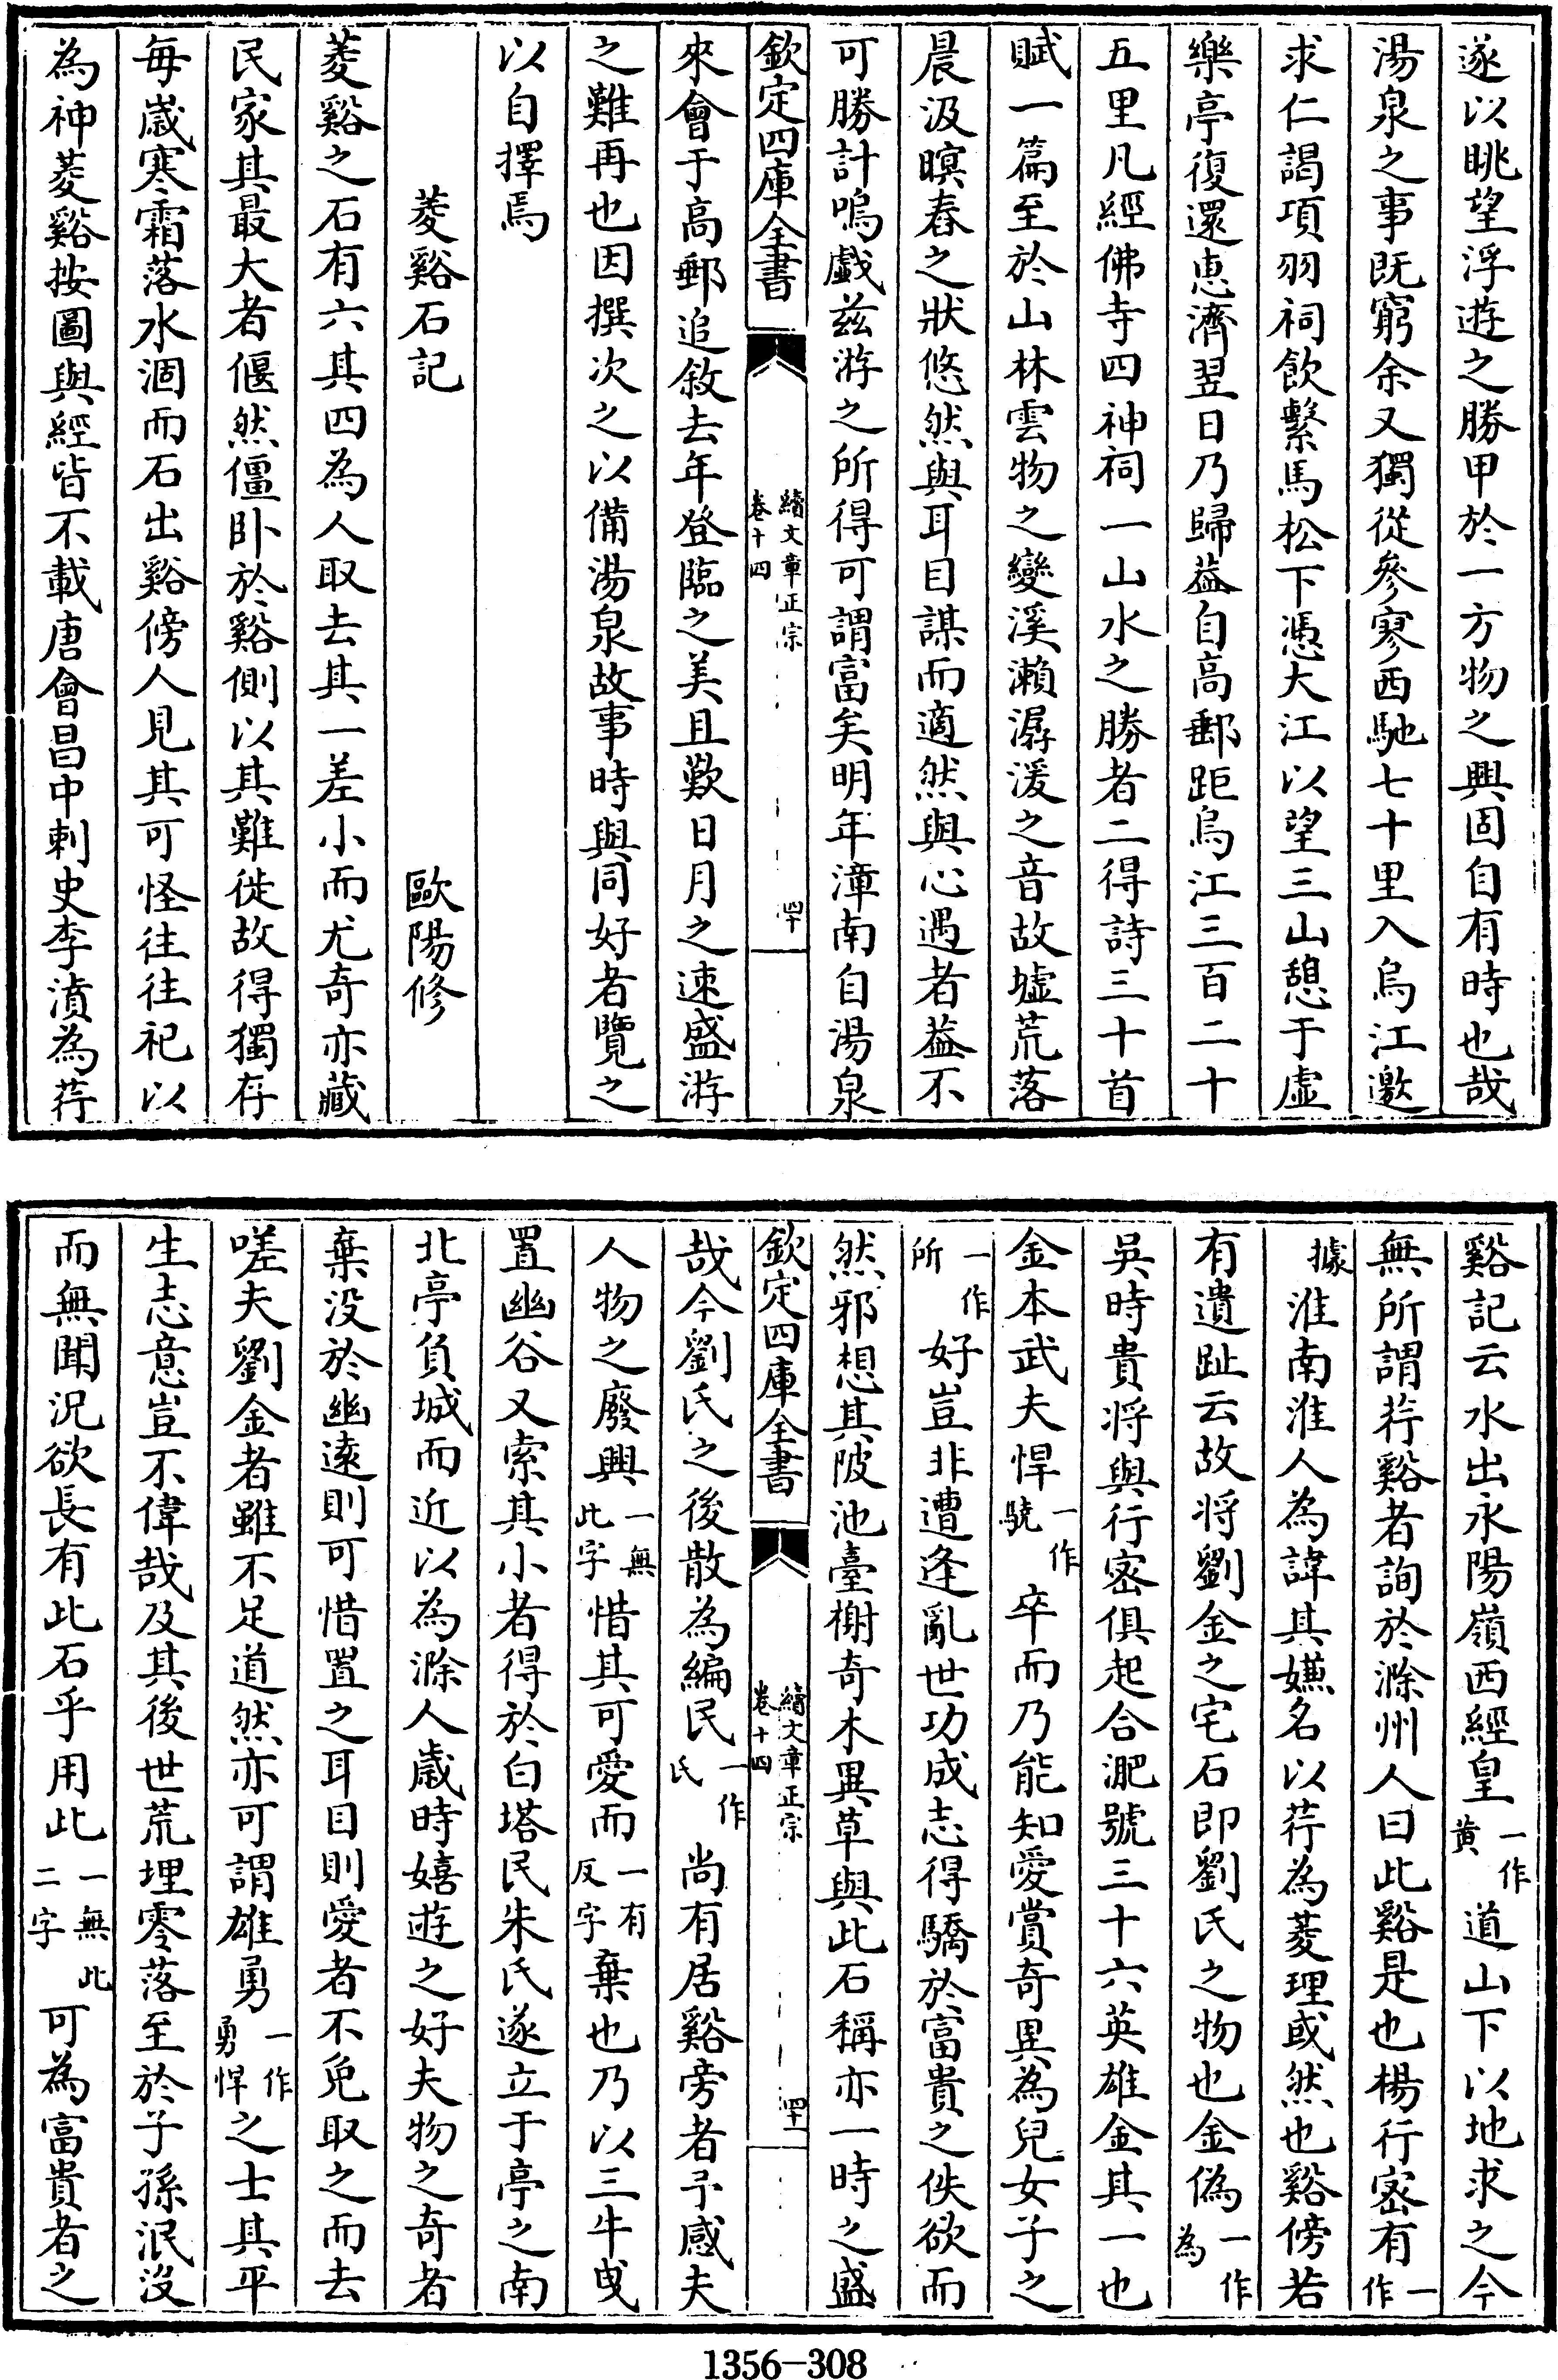 遂以眺望浮遊之勝甲於一方物之興固自有時也哉
湯泉之事既窮余又獨從參寥西馳七十里入烏江邀
求仁謁項羽祠飲繫馬松下憑大江以望三山憩于虛
樂亭復還惠濟翌日乃歸葢自高郵距烏江三百二十
五里凡經佛寺四神祠一山水之勝者二得詩三十首
賦一篇至於山林雲物之變溪瀨潺湲之音故墟荒落
晨汲暝舂之狀悠然與耳目謀而適然與心遇者葢不
可勝計嗚戲兹游之所得可謂富矣明年漳南自湯泉
欽定四庫全書
續文章正宗
卷十四
四十
來會于高郵追敘去年登臨之美且歎日月之速盛游
之難再也因撰次之以備湯泉故事時與同好者覽之
以自擇焉
菱谿石記
歐陽修
菱谿之石有六其四為人取去其一差小而尤奇亦藏
民家其最大者偃然僵卧於谿側以其難徙故得獨存
每歲寒霜落水涸而石出谿傍人見其可怪往往祀以
為神菱谿按圖與經皆不載唐會昌中刺史李濆為荇
谿記云水出永陽嶺西經皇一作黄道山下以地求之今
無所謂荇谿者詢於滁州人曰此谿是也楊行密有一作
據淮南淮人為諱其嫌名以荇為菱理或然也谿傍若
有遺趾云故將劉金之宅石即劉氏之物也金偽一作為
吳時貴將與行密俱起合淝號三十六英雄金其一也
金本武夫悍一作驍卒而乃能知愛賞奇異為兒女子之
一作所好豈非遭逢亂世功成志得驕於富貴之佚欲而
然邪想其陂池臺榭奇木異草與此石稱亦一時之盛
欽定四庫全書
續文章正宗
卷十四
四十一
哉今劉氏之後散為編民一作氏尚有居谿旁者予感夫
人物之廢興一無此字惜其可愛而一有反字棄也乃以三牛曳
置幽谷又索其小者得於白塔民朱氏遂立于亭之南
北亭負城而近以為滁人歲時嬉遊之好夫物之奇者
棄没於幽遠則可惜置之耳目則愛者不免取之而去
嗟夫劉金者雖不足道然亦可謂雄勇一作勇悍之士其平
生志意豈不偉哉及其後世荒堙零落至於子孫泯沒
而無聞況欲長有此石乎用此一無此二字可為富貴者之
1356-308